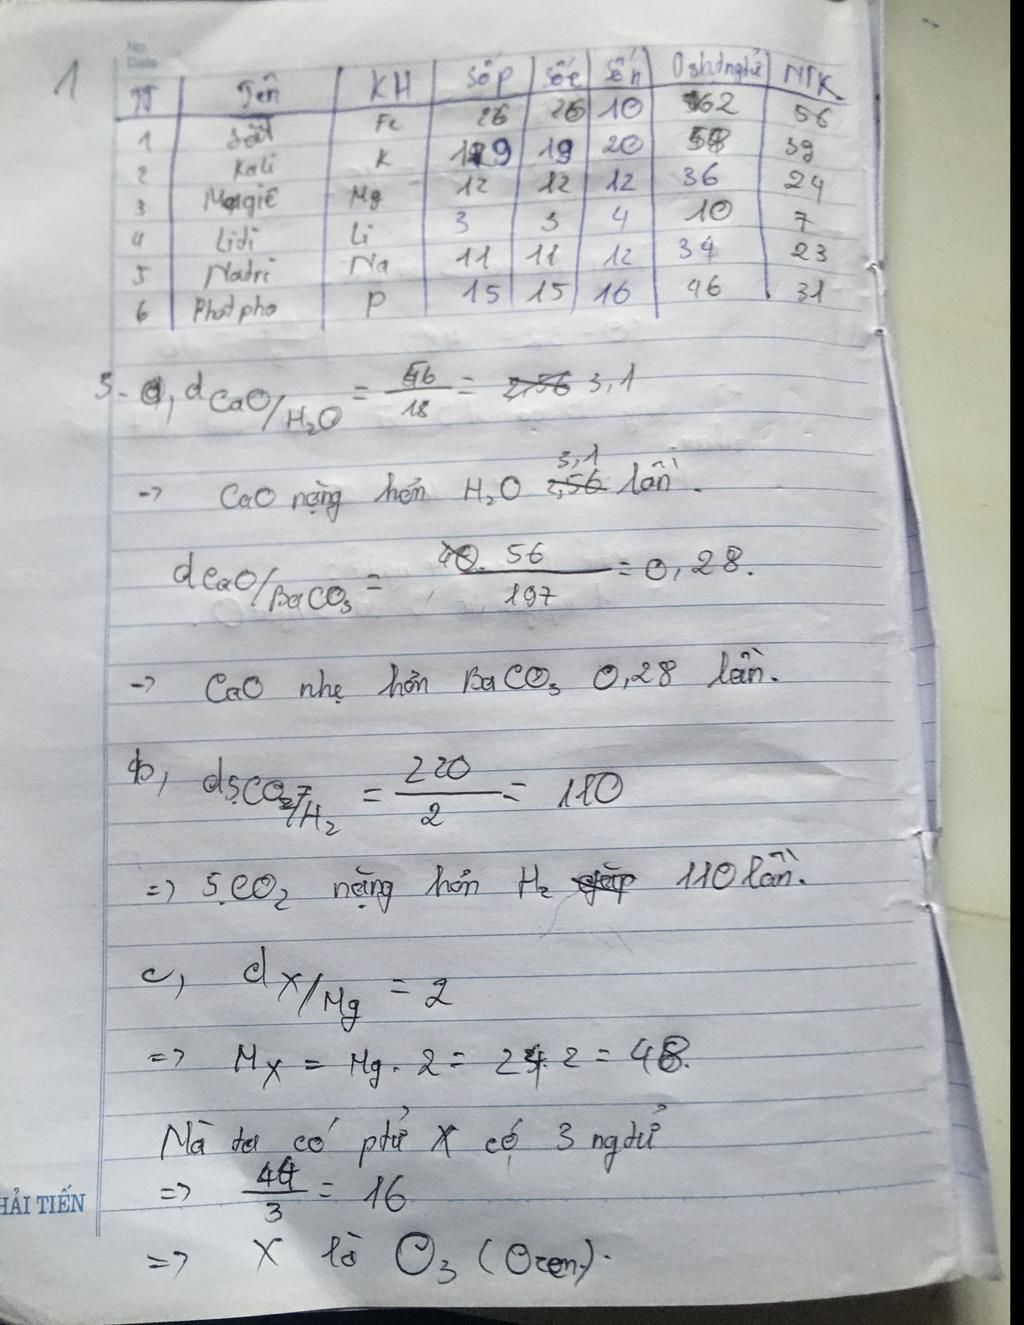 1
TT Tên KH Số p Số e Số n NTK
1 Sắt Fe 26 26 10 162 56
2 Kali K 19 19 20 58 39
3 Magie Mg 12 12 12 36 24
4 Liti Li 3 3 4 10 7
5 Natri Na 11 11 12 34 23
6 Photpho P 15 15 16 46 31
5. a, d CaO/H₂O = 56/18 = 2,56 3,1
3,1
-> CaO nặng hơn H₂O 2,56 lần.
d CaO/BaCO₃ = 40. 56/197 = 0,28.
-> CaO nhẹ hơn BaCO₃ 0,28 lần.
b, d 5CO₂/H₂ = 220/2 = 110
=> 5.CO₂ nặng hơn H₂ gấp 110 lần.
c, d X/Mg = 2
=> Mx = Mg. 2 = 24. 2 = 48.
Mà ta có ptử X có 3 ngtử
=> 48/3 = 16
HẢI TIẾN
=> X là O₃ (Ozon).